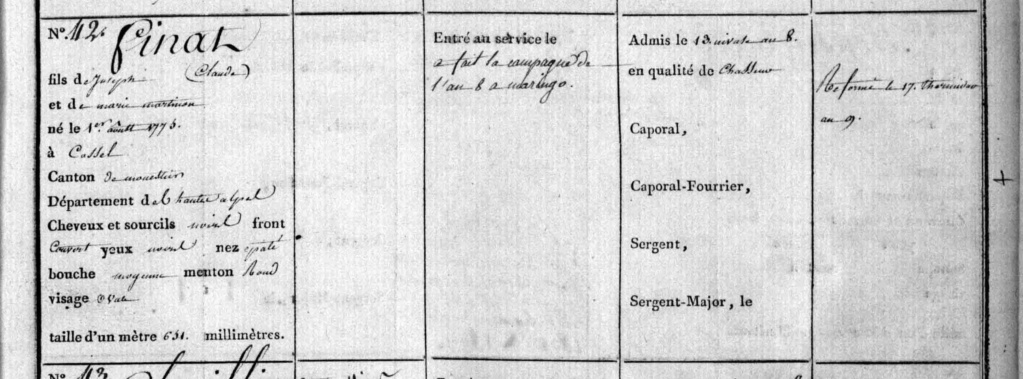 N.º 112. Finat
fils de Joseph (Claude)
et de marie martinon
né le 1er aoutt 1775.
à Cossel
Canton de monestier
Département des hautes alpes
Cheveux et sourcils noirs front
Couvert yeux noirs nez épaté
bouche moyenne menton Rond
visage ovale
taille d'un mètre 651. millimètres.
Entré au service le
a fait la campagne de
l'an 8 a maringo.
Admis le 13 nivose an 8.
en qualité de Chasseur
Caporal,
Caporal-Fourrier,
Sergent,
Sergent-Major, le
Reformé le 17. thermidor
an 9.
N.º 113